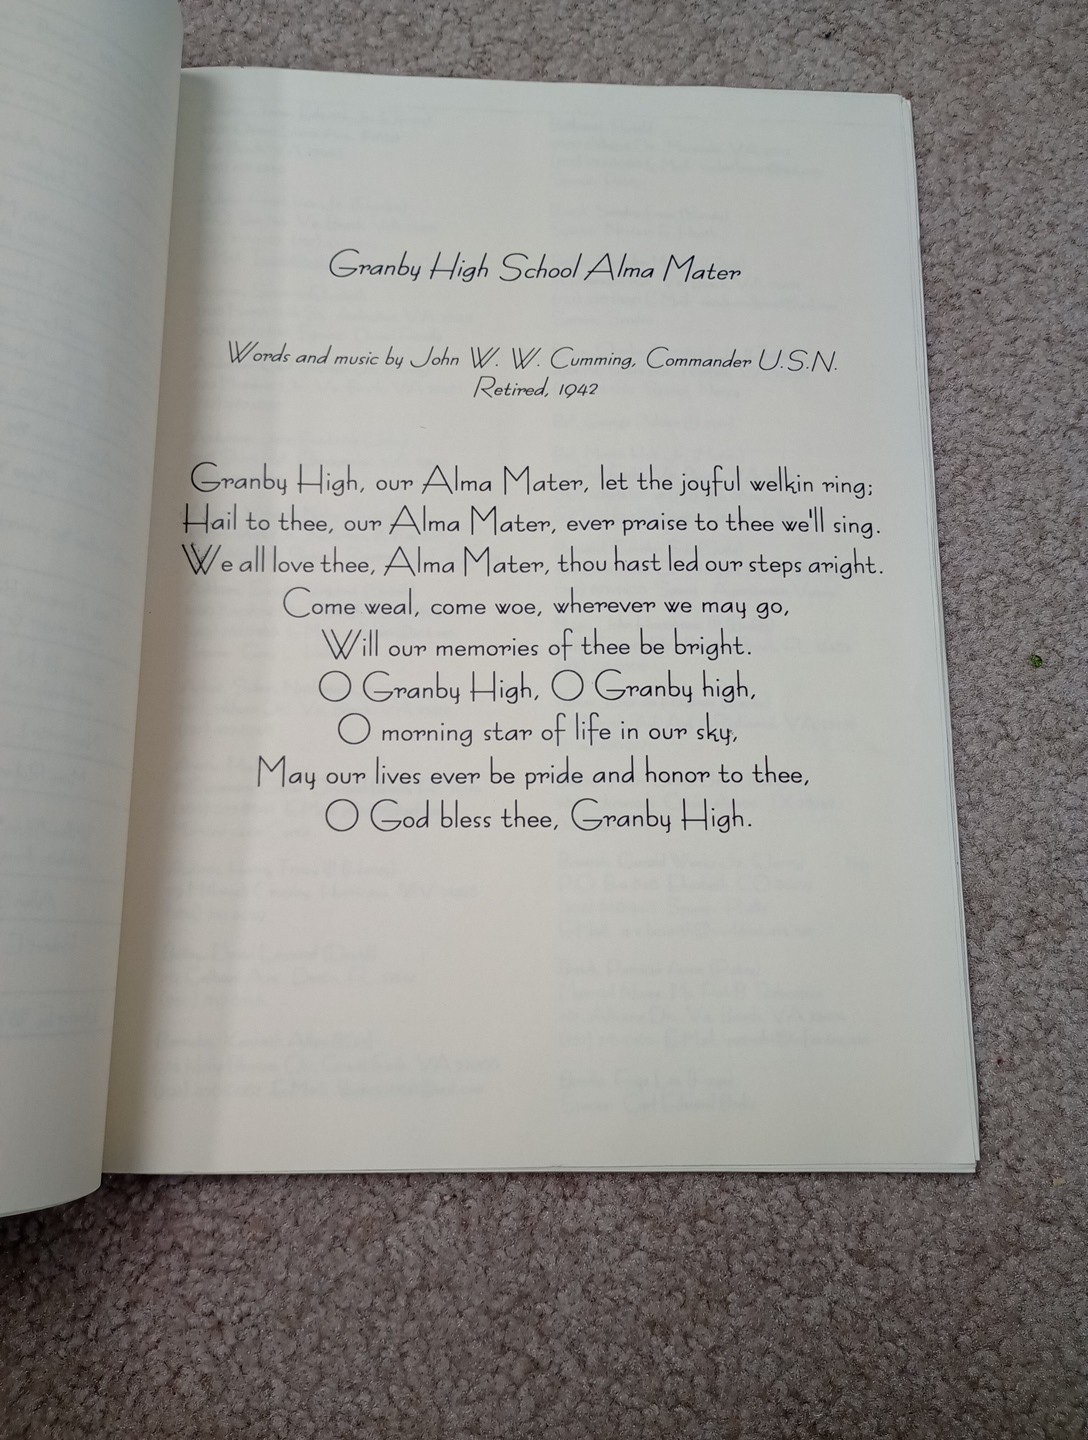 Granby High School Alma Mater
Words and music by John W. W. Cumming, Commander U.S.N.
Retired, 1942
Granby High, our Alma Mater, let the joyful welkin ring;
Hail to thee, our Alma Mater, ever praise to thee we'll sing.
We all love thee, Alma Mater, thou hast led our steps aright.
Come weal, come woe, wherever we may go,
Will our memories of thee be bright.
O Granby High, O Granby high,
O morning star of life in our sky,
May our lives ever be pride and honor to thee,
O God bless thee, Granby High.